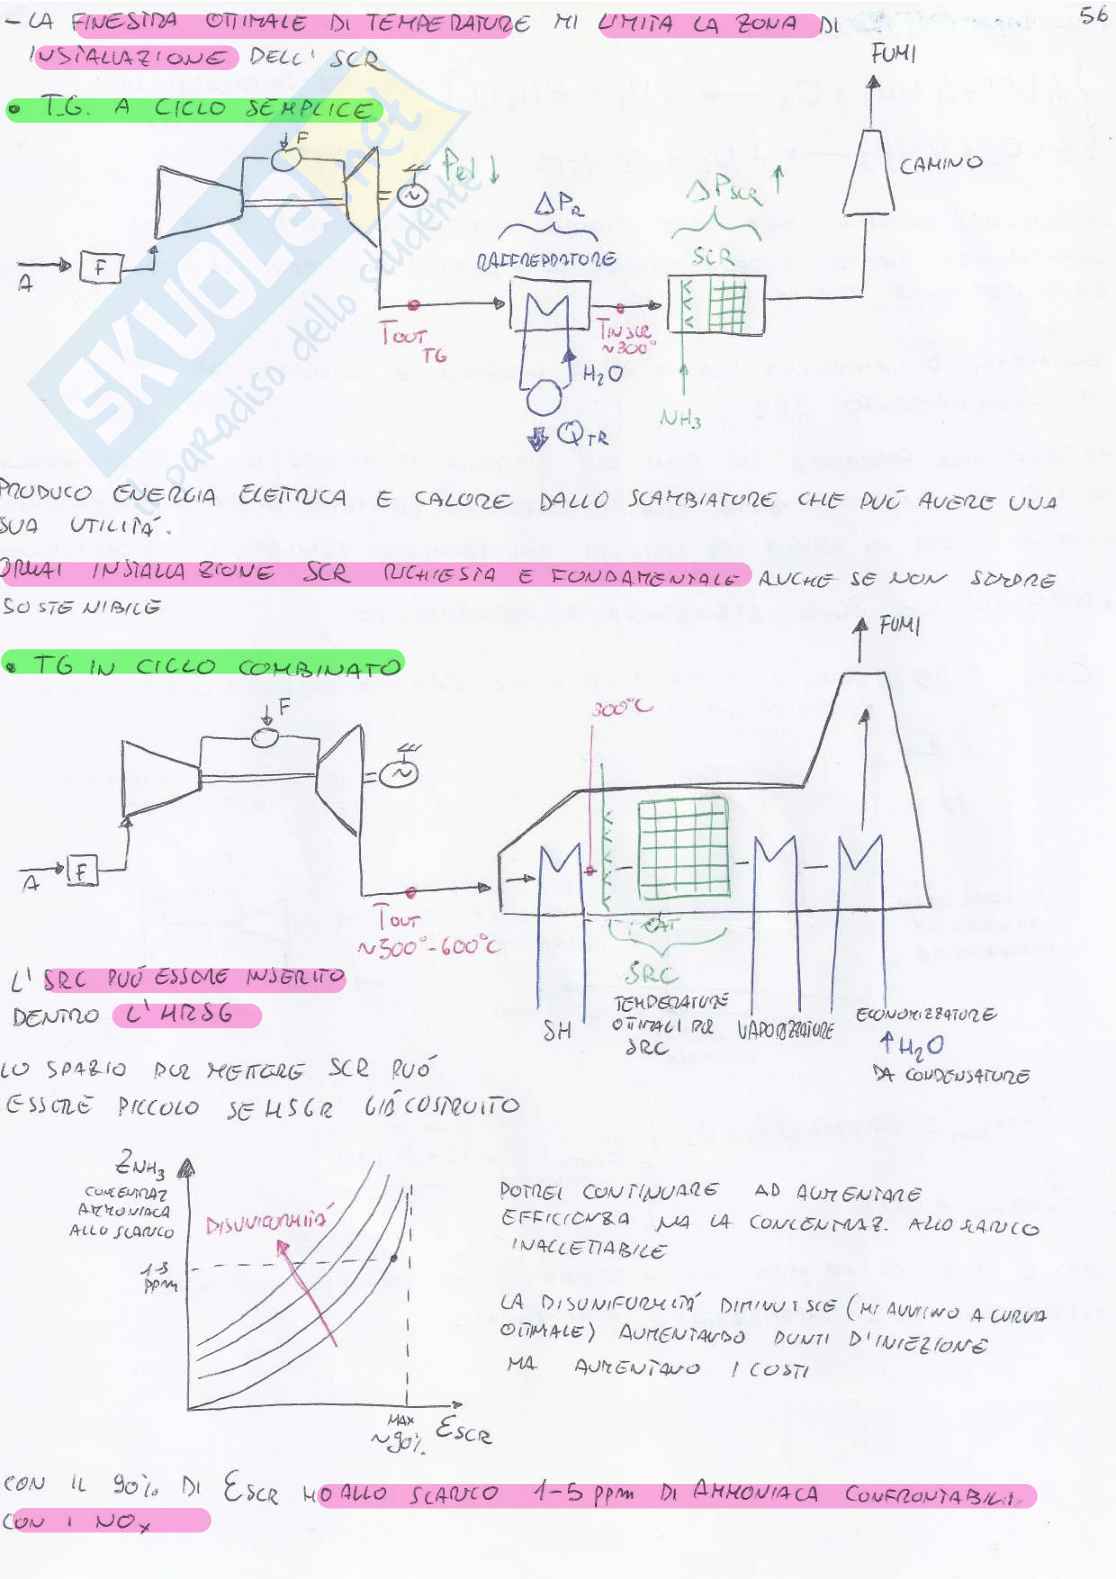 56
- LA FINESTRA OTTIMALE DI TEMPERATURE MI LIMITA LA ZONA DI
INSTALLAZIONE DELL' SCR
• T.G. A CICLO SEMPLICE
FUMI
F
Pel ↓
CAMINO
ΔPR
ΔPSCR ↑
RAFFREDDATORE
SCR
A
F
TOUT TG
TIN SCR
~300°
H2O
NH3
QTR
SKUOLA.net
il paradiso dello studente
PRODUCO ENERGIA ELETTRICA E CALORE DALLO SCAMBIATORE CHE PUÓ AVERE UNA
SUA UTILITÁ.
ORMAI INSTALLAZIONE SCR RICHIESTA E FONDAMENTALE ANCHE SE NON SEMPRE
SOSTENIBILE
FUMI
• TG IN CICLO COMBINATO
F
300°C
A
F
TOUT
~500°-600°C
CAT
L' SRC PUÓ ESSERE INSERITO
DENTRO L'HRSG
SRC
TEMPERATURE
OTTIMALI PER
SRC
SH
VAPORIZZATORE
ECONOMIZZATORE
↑ H2O
DA CONDENSATORE
LO SPAZIO PER METTERE SCR PUÓ
ESSERE PICCOLO SE HSGR GIÁ COSTRUITO
ZNH3
CONCENTRAZ
AMMONIACA
ALLO SCARICO
DISUNIFORMITÁ
1-5
ppm
MAX
~90%
ESCR
POTREI CONTINUARE AD AUMENTARE
EFFICIENZA MA LA CONCENTRAZ. ALLO SCARICO
INACCETTABILE
LA DISUNIFORMITÁ DIMINUISCE (MI AVVICINO A CURVA
OTTIMALE) AUMENTANDO PUNTI D'INIEZIONE
MA AUMENTANO I COSTI
CON IL 90% DI ESCR HO ALLO SCARICO 1-5 ppm DI AMMONIACA CONFRONTABILI
CON I NOx